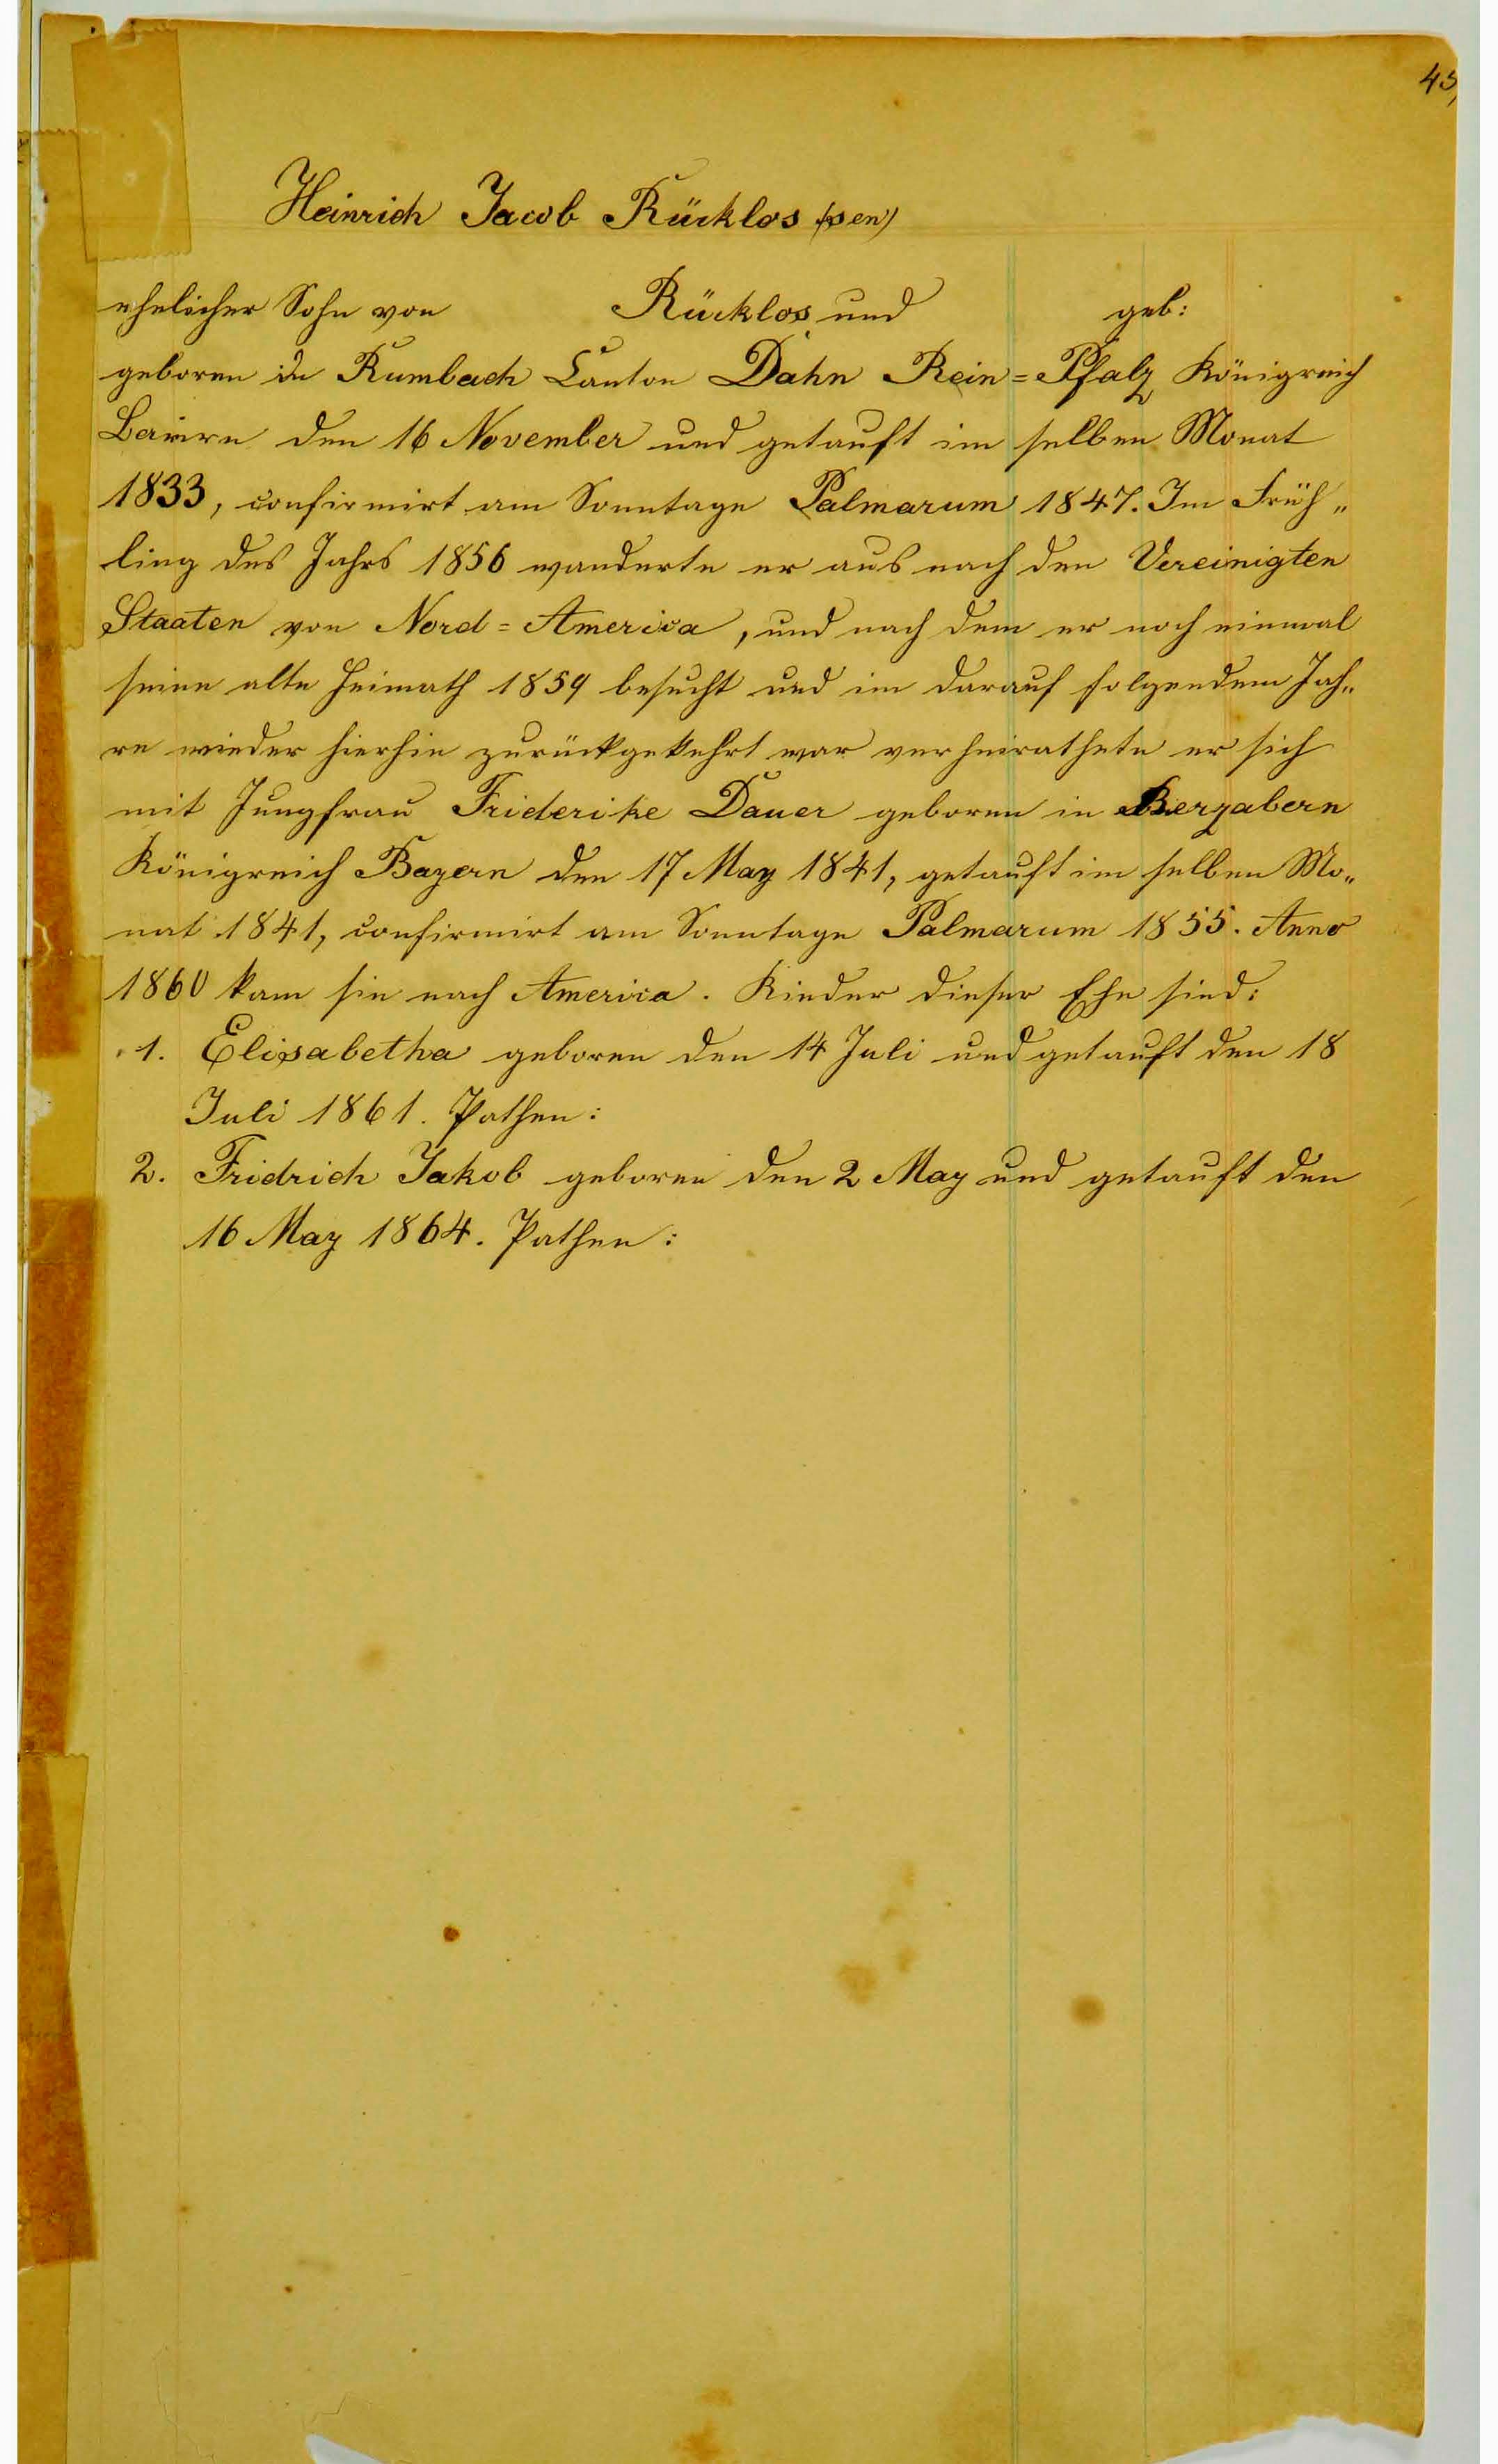 45,
Heinrich Jacob Rücklos (sen)
ehelicher Sohn von Rücklos und geb:
geboren in Rumbach Canton Dahn Rein=Pfalz Königreich
Baiern den 16 November und getauft im selben Monat
1833, confirmirt am Sonntage Palmarum 1847. Im Früh„
ling des Jahrs 1856 wanderte er aus nach den Vereinigten
Staaten von Nord=America, und nach dem er noch einmal
seine alte Heimath 1859 besucht und im darauf folgendem Jah„
re wieder hierhin zurückgekehrt war verheirathete er sich
mit Jungfrau Friderike Dauer geboren in Bergzabern
Königreich Bayern den 17 May 1841, getauft im selben Mo„
nat 1841, confirmirt am Sonntage Palmarum 1855. Anno
1860 kam sie nach America. Kinder dieser Ehe sind:
1. Elisabetha geboren den 14 Juli und getauft den 18
Juli 1861. Pathen:
2. Fridrich Jakob geboren den 2 May und getauft den
16 May 1864. Pathen: